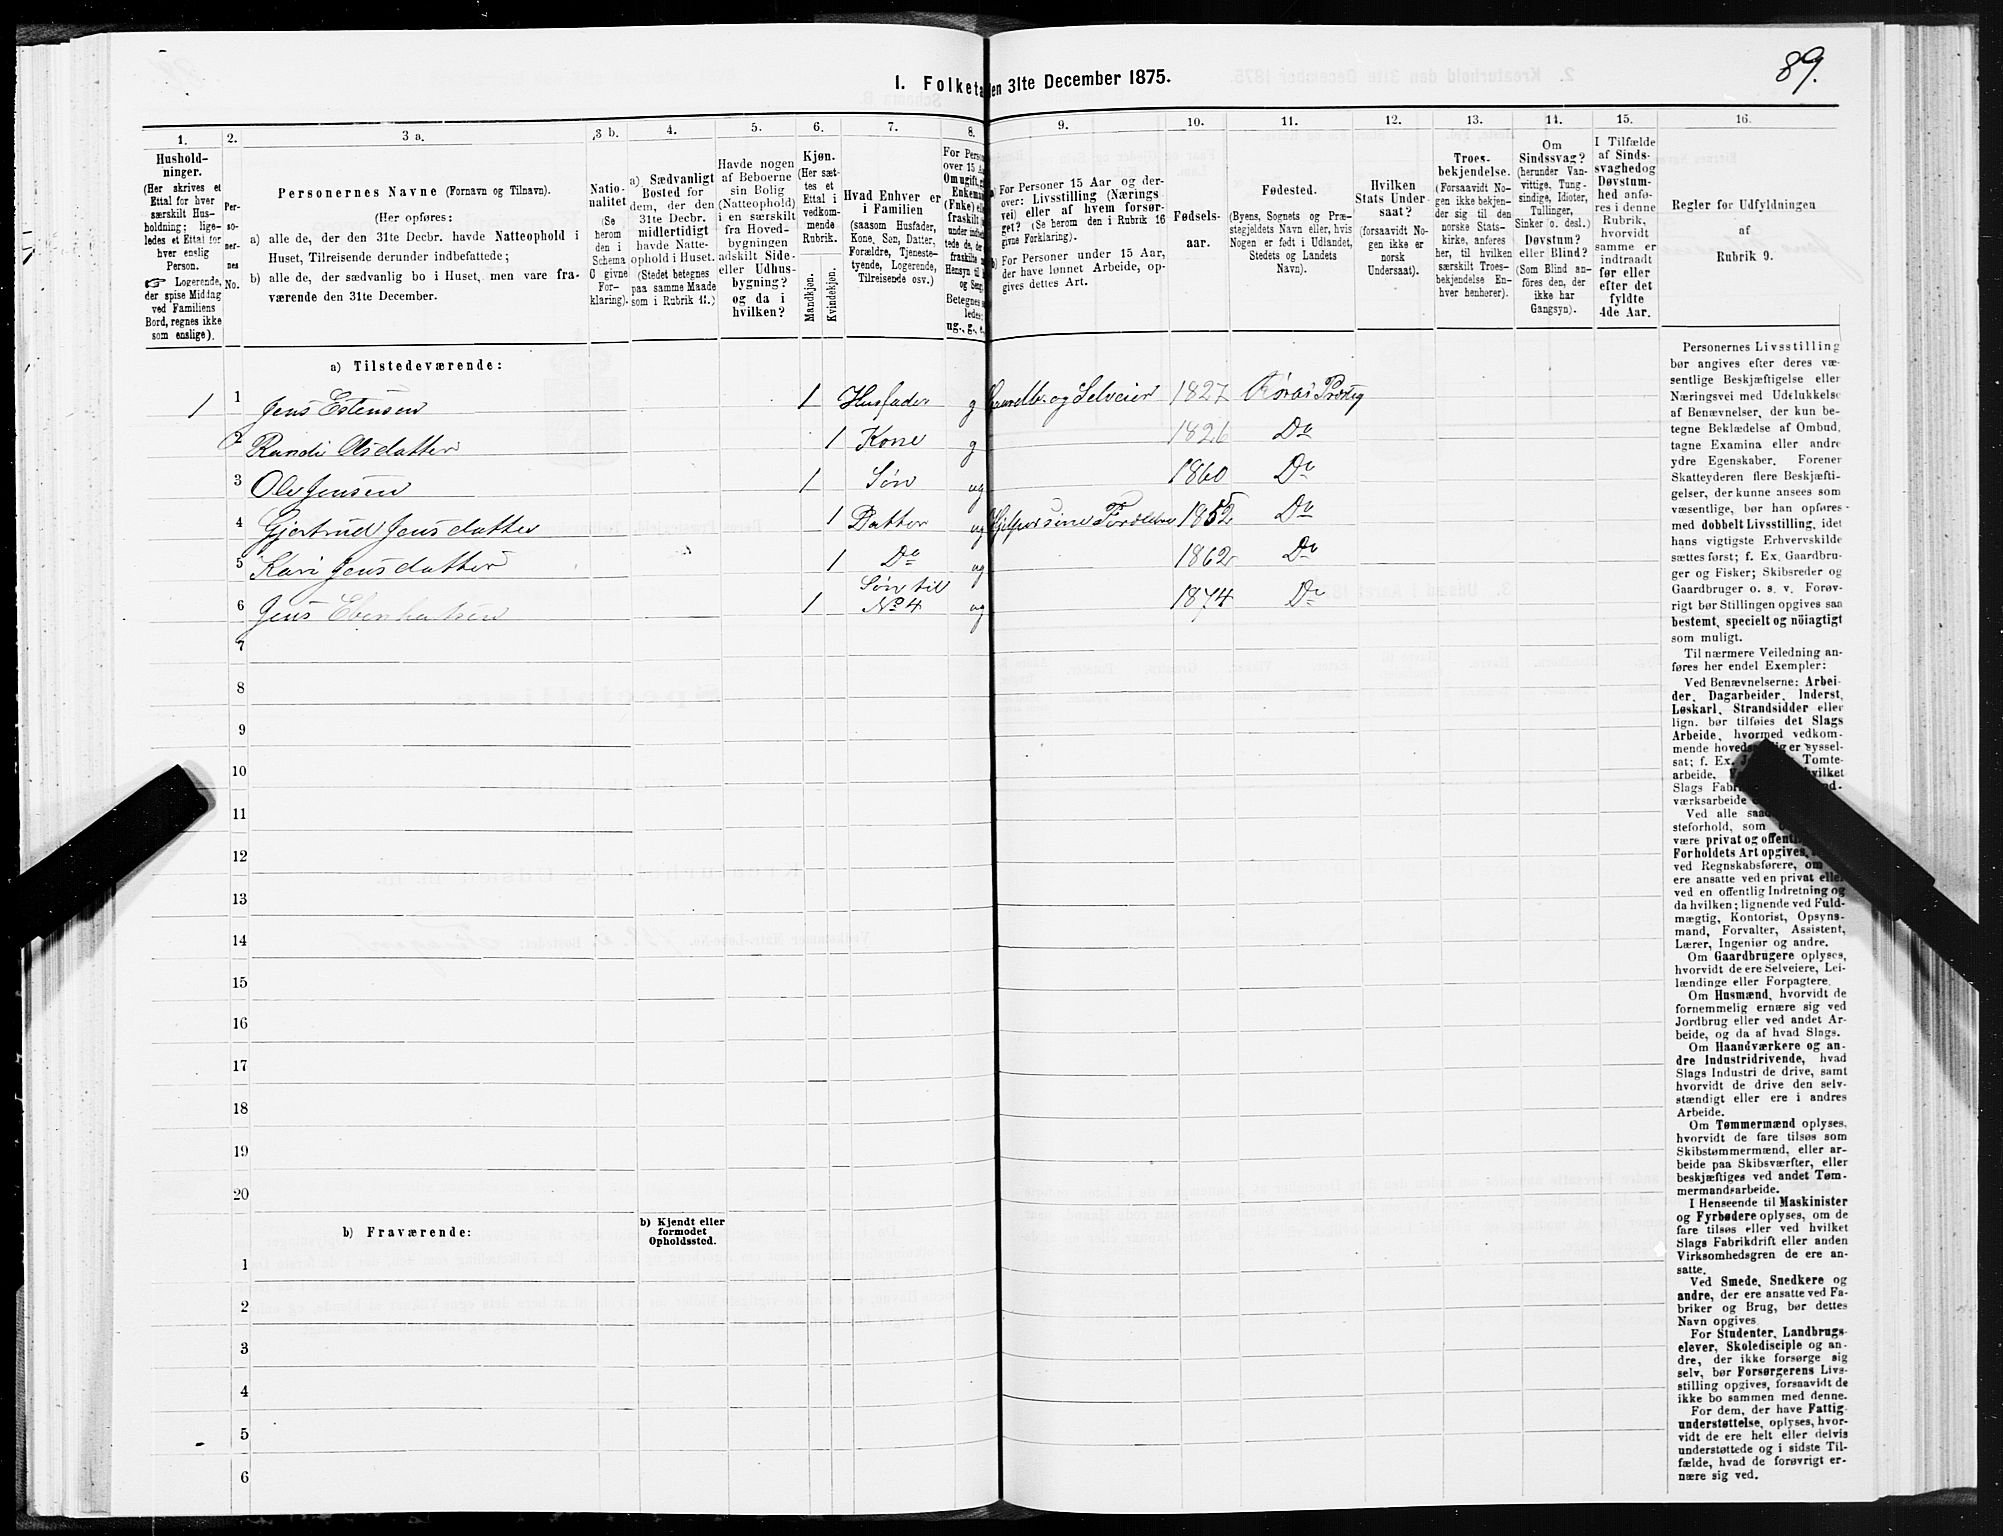 89.
I. Folketa en 31te December 1875.
1. 2. 3 a. 3 b. 4. 5. 6. 7. 8. 9. 10. 11. 12. 13. 14. 15. 16.
Hushold-
ninger.
(Her skrives et
Ettal for hver
særskilt Hus-
holdning; lige-
ledes et Ettal for
hver enslig
Person.
☞ Logerende,
der spise Middag
ved Familiens
Bord, regnes ikke
som enslige).
Per-
so-
ner-
nes
No.
Personernes Navne (Fornavn og Tilnavn).
(Her opføres:
a) alle de, der den 31te Decbr. havde Natteophold i
Huset, Tilreisende derunder indbefattede;
b) alle de, der sædvanlig bo i Huset, men vare fra-
værende den 31te December.
Natio-
nalitet
(Se
herom
den i
Schema
C givne
For-
klaring).
a) Sædvanligt
Bosted for
dem, der den
31te Decbr.
midlertidigt
havde Natte-
ophold i Huset.
(Stedet betegnes
paa samme Maade
som i Rubrik 11.)
Havde nogen
af Beboerne
sin Bolig
(Natteophold)
i en særskilt
fra Hoved-
bygningen
adskilt Side-
eller Udhus-
bygning?
og da i
hvilken?
Kjøn.
(Her sæt-
tes et
Ettal i
vedkom-
mende
Rubrik.
Mandkjøn.
Kvindekjøn.
Hvad Enhver er
i Familien
(saasom Husfader,
Kone, Søn, Datter,
Forældre, Tjeneste-
tyende, Logerende,
Tilreisende osv.)
For Person
over 15 Aa
Om ugift, g
Enkeman
(Enke) el
fraskilt
under indbe
tede de, der
fraskilte
Hensyn til
og Seng.
Betegnes s
ledes:
ug., g., e.
a) For Personer 15 Aar og der-
over: Livsstilling (Nærings
vei) eller af hvem forsør-
get? (Se herom i Rubrik 16
givne Forklaring).
b) For Personer under 15 Aar,
der have lønnet Arbeide, op-
gives dettes Art.
Fødsels-
aar.
Fødested.
(Byens, Sognets og Præ-
stegjeldets Navn eller, hvis
Nogen er født i Udlandet,
Stedets og Landets
Navn).
Hvilken
Stats Under-
saat?
(forsaavidt No-
gen ikke er
norsk
Undersaat).
Troes-
bekjendelse.
(Forsaavidt No-
gen ikke bekjen-
der sig til den
norske Stats-
kirke, anføres
her, til hvilken
særskilt Troes-
bekjendelse En-
hver henhører).
Om
Sindssvag?
(herunder Van-
vittige, Tung-
sindige, Idioter,
Tullinger,
Sinker o. desl.)
Døvstum?
eller Blind?
(Som Blind an-
føres den, der
ikke har
Gangsyn).
I Tilfælde
af Sinds-
svaghed og
Døvstum-
hed anfø-
res i denne
Rubrik,
hvorvidt
samme er
indtraadt
før eller
efter det
fyldte
4de Aar.
Regler for Udfyldningen
af
Rubrik 9.
a) Tilstedeværende:
1 1 Jens Estensen 1 Husfader g Gaardbr. og Selveier 1827 Røros Præstg
2 Randi Olsdatter 1 Kone g 1826 Do
3 Ole Jensen 1 Søn ug 1860 Do
4 Gjertrud Jensdatter 1 Datter ug Hjelper sine Forældre 1852 Do
5 Kari Jensdatter 1 Do ug 1862 Do
6 Jens 1 Søn til No 4 ug 1874 Do
7
8
9
10
11
12
13
14
15
16
17
18
19
20
b) Fraværende:
b) Kjendt eller
formodet
Opholdssted.
1
2
3
4
5
6
Personernes Livsstilling
bør angives efter deres væ-
sentlige Beskjæftigelse eller
Næringsvei med Udelukkelse
af Benævnelser, der kun be-
tegne Beklædelse af Ombud,
tagne Examina eller andre
ydre Egenskaber. Forener
Skatteyderen flere Beskjæfti-
gelser, der kunne ansees som
væsentlige, bør han opføres
med dobbelt Livsstilling, idet
hans vigtigste Erhvervskilde
sættes først; f. Ex. Gaardbru-
ger og Fisker; Skibsreder og
Gaardbruger o. s. v. Forøv-
rigt bør Stillingen opgives saa
bestemt, specielt og nöiagtigt
som muligt.
Til nærmere Veiledning an-
føres her endel Exempler:
Ved Benævnelserne: Arbei-
der, Dagarbeider, Inderst,
Løskarl, Strandsidder eller
lign. bør tilføies det Slags
Arbeide, hvormed vedkom-
mende hoveds ig er syssel-
sat; f. Ex. J Tomte-
arbeide, hvilket
Slags Fabr nd-
værksarbeide
Ved alle saad
steforhold, som
være privat og offentl
Forholdets Art opgives,
ved Regnskabsførere, om
ere ansatte ved en privat eller
ved en offentlig Indretning og
da hvilken; lignende ved Fuld-
mægtig, Kontorist, Opsyns-
mand, Forvalter, Assistent,
Lærer, Ingeniør og andre.
Om Gaardbrugere oplyses,
hvorvidt de ere Selveiere, Lei-
lændinge eller Forpagtere.
Om Husmænd, hvorvidt de
fornemmelig ernære sig ved
Jordbrug eller ved andet Ar-
beide, og da af hvad Slags.
Om Haandværkere og an-
dre Industridrivende, hvad
Slags Industri de drive, samt
hvorvidt de drive den selv-
stændigt eller ere i andres
Arbeide.
Om Tømmermænd oplyses,
hvorvidt de fare tilsøs som
Skibstømmermænd, eller ar-
beide paa Skibsværfter, eller
beskjæftiges ved andet Tøm-
mermandsarbeide.
I Henseende til Maskinister
og Fyrbødere oplyses, om de
fare tilsøs eller ved hvilket
Slags Fabrikdrift eller anden
Virksomhedsgren de ere an-
satte.
Ved Smede, Snedkere og
andre, der ere ansatte ved Fa-
briker og Brug, bør dettes
Navn opgives
For Studenter, Landbrugs-
elever, Skoledisciple og an-
dre, der ikke forsørge sig
selv, bør Forsørgerens Livs-
stilling opgives, forsaavidt de
ikke bo sammen med denne.
For dem, der have Fattig-
understøttelse, oplyses, hvor-
vidt de ere helt eller delvis
understøttede og i sidste Til-
fælde, hvad de forøvrigt er-
nære sig ved.